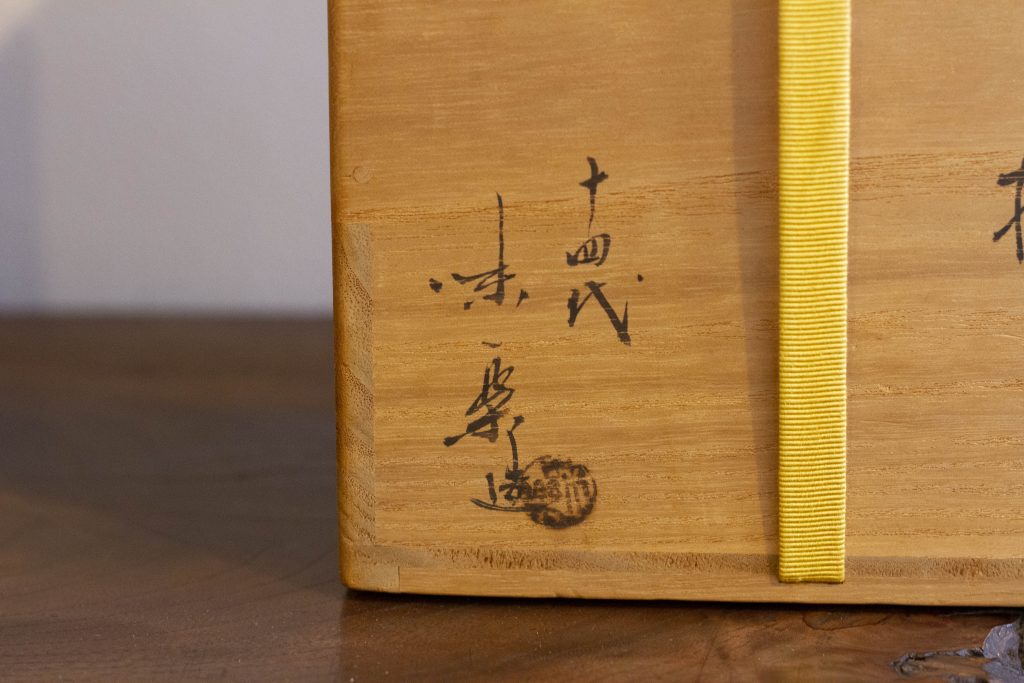 十四代
味楽造